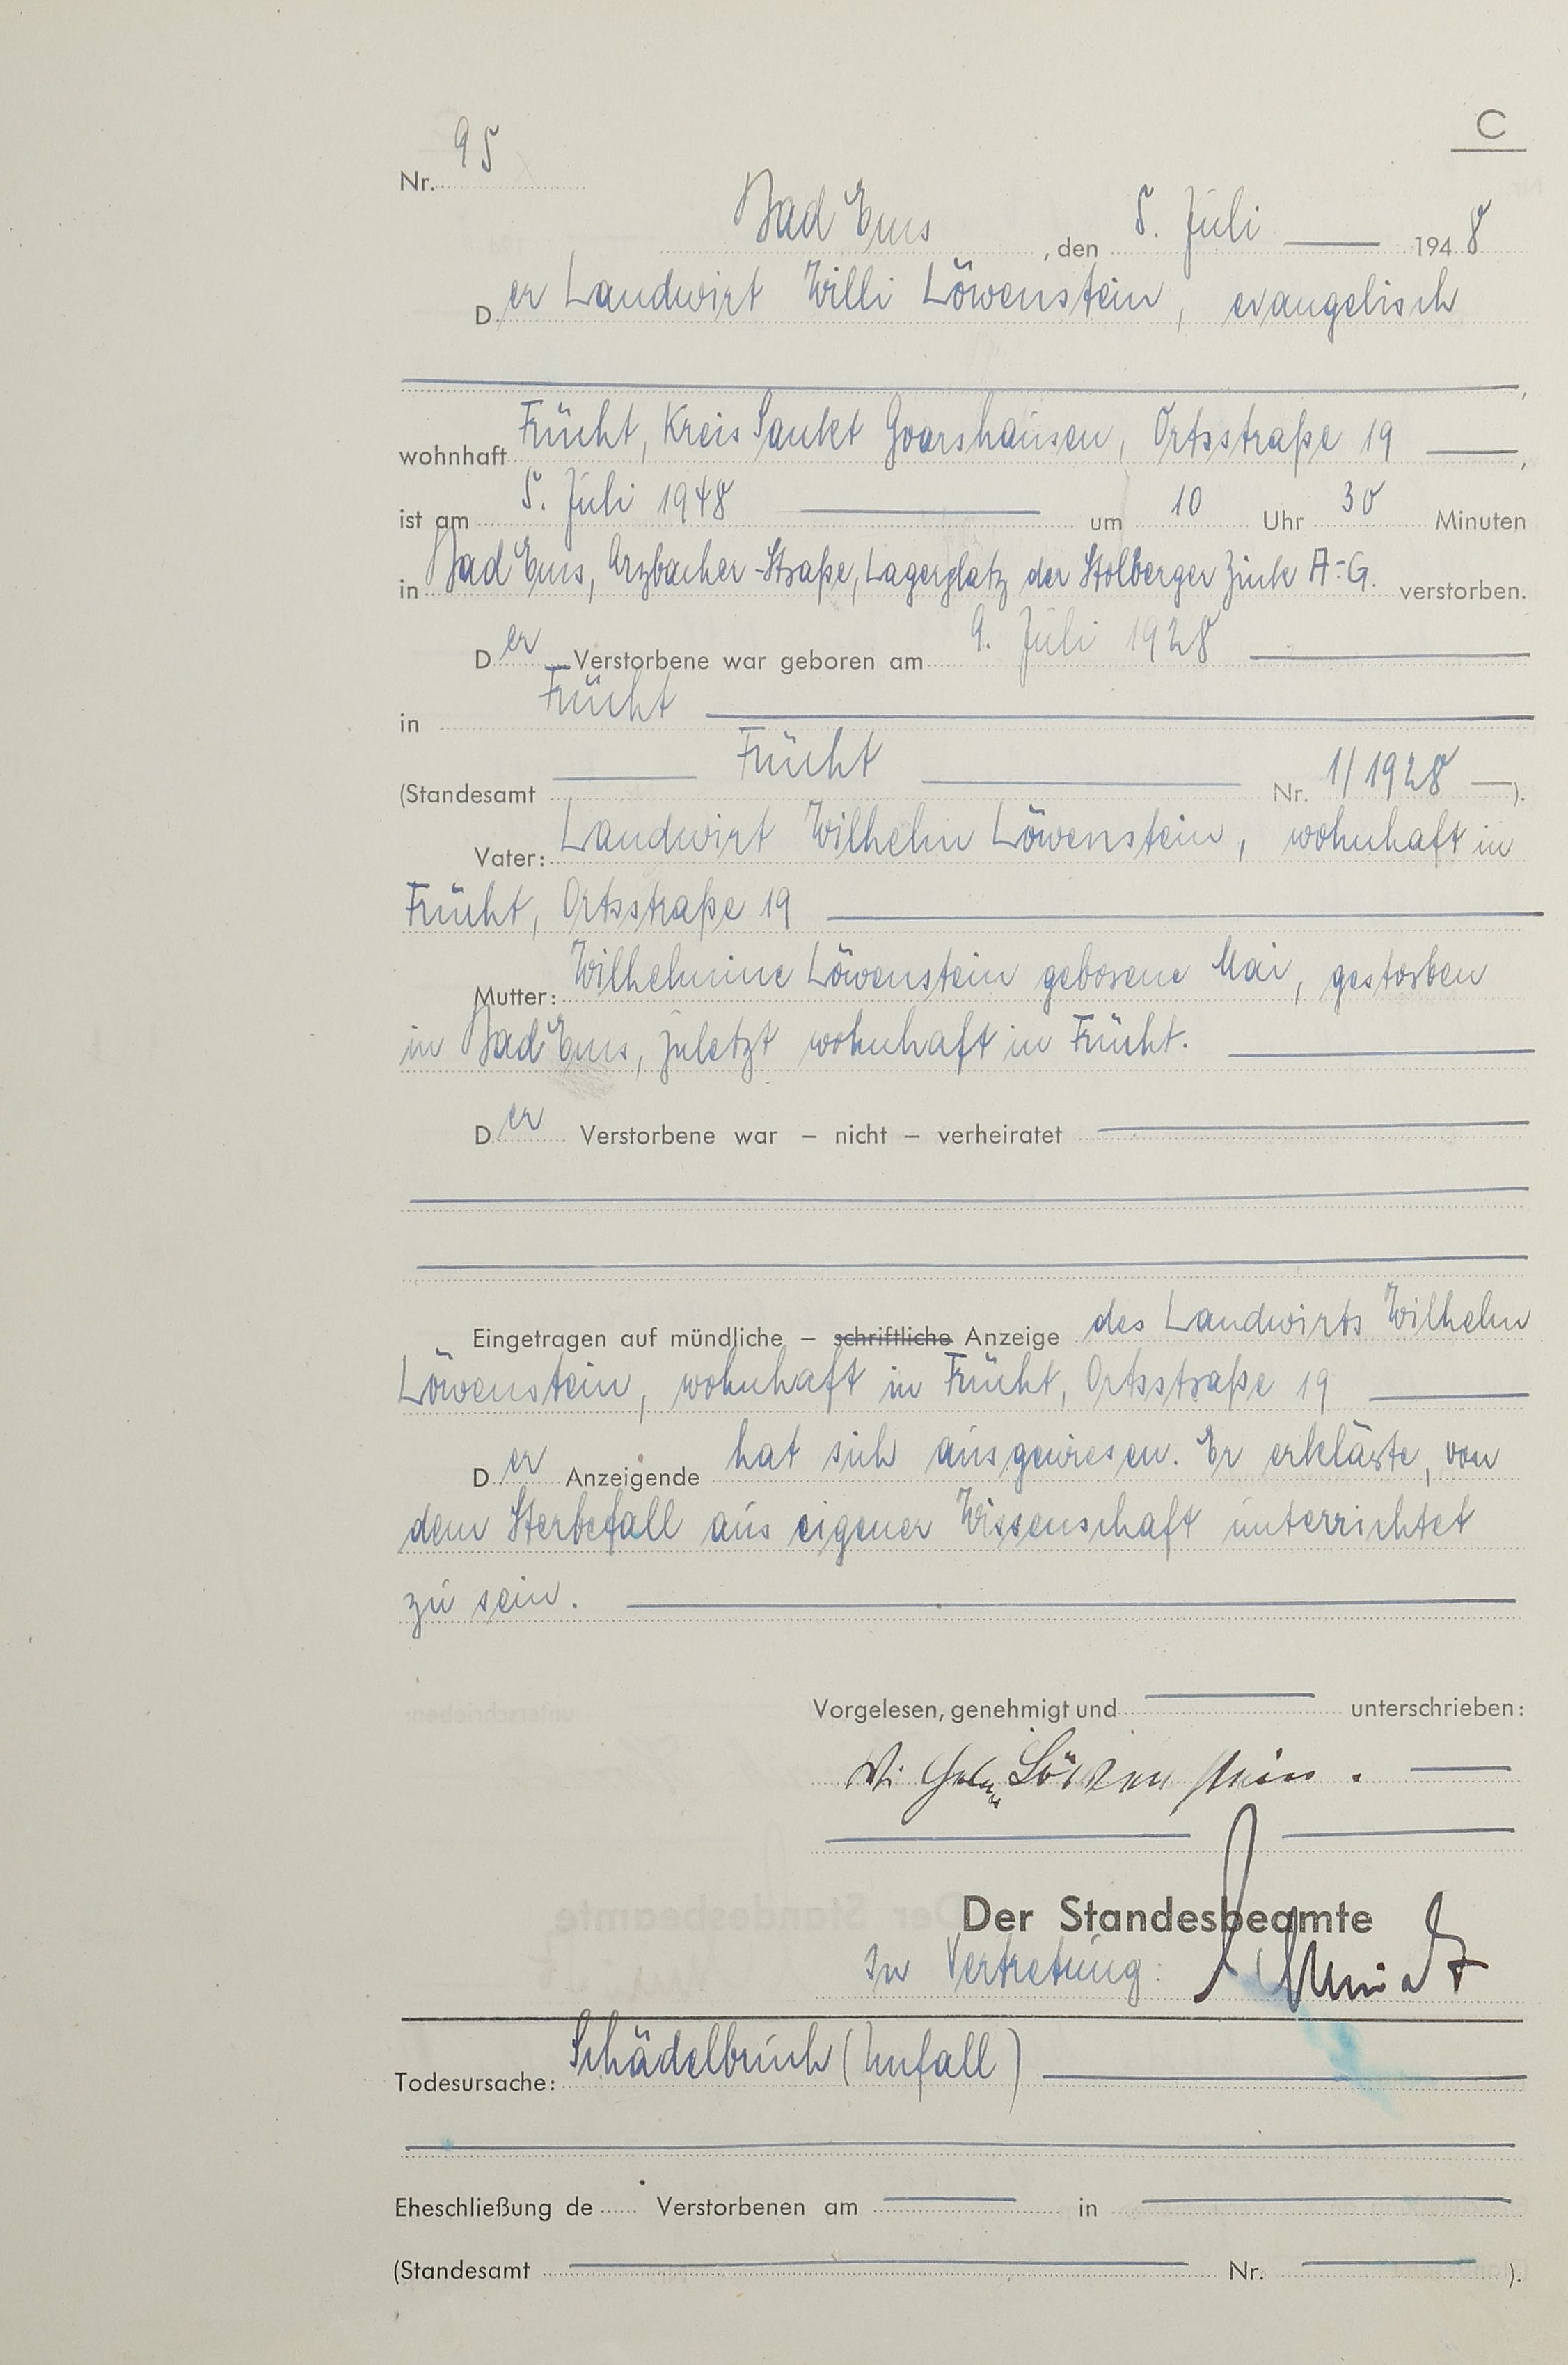 C
Nr. 95
Bad Ems, den 5. Juli 1948
Der Landwirt Willi Löwenstein, evangelisch
wohnhaft Frücht, Kreis Sankt Goarshausen, Ortsstraße 19,
ist am 5. Juli 1948 um 10 Uhr 30 Minuten
in Bad Ems, Arzbacher-Straße, Lagerplatz der Stolberger Zink A=G. verstorben.
Der Verstorbene war geboren am 9. Juli 1928
in Frücht
(Standesamt Frücht Nr. 1/1928).
Vater: Landwirt Wilhelm Löwenstein, wohnhaft in
Frücht, Ortsstraße 19
Mutter: Wilhelmine Löwenstein geborene Mai, gestorben
in Bad Ems, zuletzt wohnhaft in Frücht.
Der Verstorbene war – nicht – verheiratet
Eingetragen auf mündliche – schriftliche Anzeige des Landwirts Wilhelm
Löwenstein, wohnhaft in Frücht, Ortsstraße 19
Der Anzeigende hat sich ausgewiesen. Er erklärte, von
dem Sterbefall aus eigener Wissenschaft unterrichtet
zu sein.
Vorgelesen, genehmigt und unterschrieben:
Wilhelm Löwenstein.
Der Standesbeamte
In Vertretung: Schmidt
Todesursache: Schädelbruch (Unfall)
Eheschließung de Verstorbenen am in
(Standesamt Nr. ).